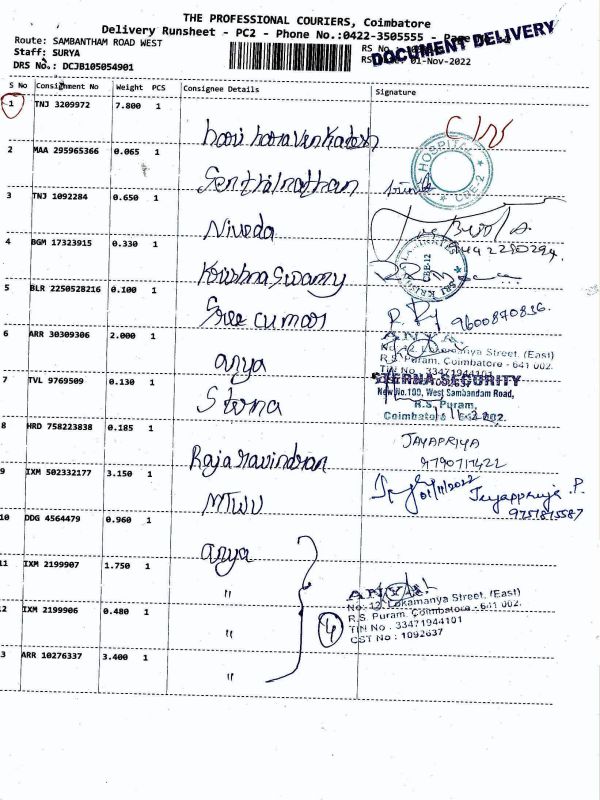 THE PROFESSIONAL COURIERS, Coimbatore
Delivery Runsheet - PC2 - Phone No.:0422-3505555 - Page
Route: SAMBANTHAM ROAD WEST
Staff: SURYA
DRS No.: DCJB105054901
RS No
01-Nov-2022
DOCUMENT DELIVERY
S No Consignment No Weight PCS Consignee Details Signature
1 TNJ 3209972 7.800 1
2 MAA 295965366 0.065 1 Senthilnathan
HOSPITAL
CBE-2
3 TNJ 1092284 0.650 1 Niveda
4 BGM 17323915 0.330 1 Krishnaswamy
CBE-12
5 BLR 2250528216 0.100 1 Sree cumar
9600870836.
6 ARR 30309306 2.000 1 anya
ANYA
No. 12, Lokamanya Street, (East)
R.S. Puram, Coimbatore - 641 002.
TIN No : 33471944101
7 TVL 9769509 0.130 1 Sterna
STERNA SECURITY
New No.100, West Sambandam Road,
R.S. Puram,
Coimbatore - 641 002.
8 HRD 758223838 0.185 1 Rajaravindran
JAYAPRIYA
9790717422
9 IXM 502332177 3.150 1 MTWU
01/11/2022
Jayappriya .P.
9751815587
10 DDG 4564479 0.960 1 anya
11 IXM 2199907 1.750 1 "
12 IXM 2199906 0.480 1 "
4
ANYA
No. 12, Lokamanya Street, (East)
R.S. Puram, Coimbatore - 641 002.
TIN No : 33471944101
CST No : 1092637
3 ARR 10276337 3.400 1 "